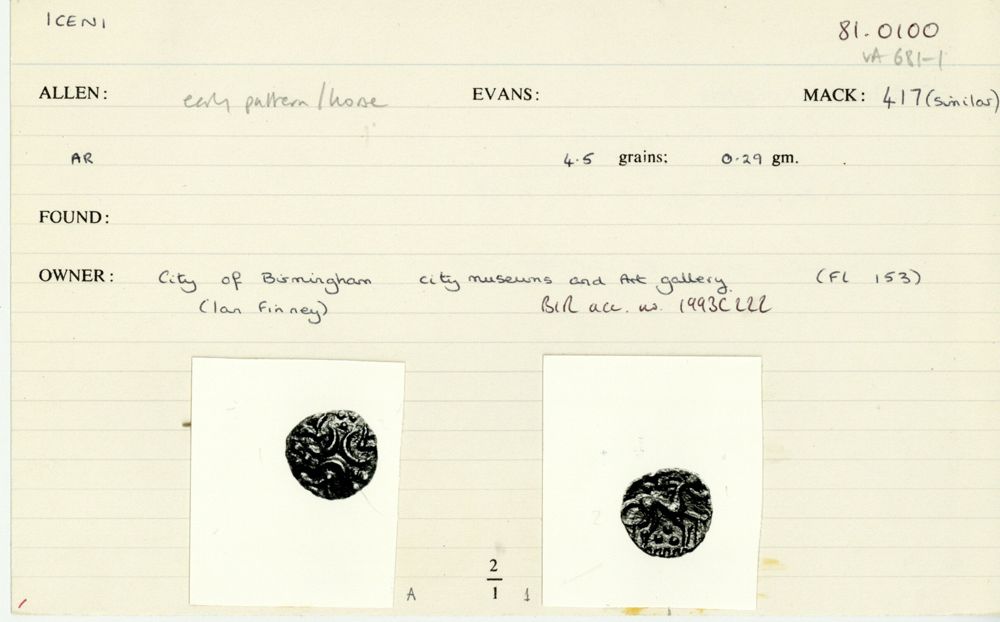 ICENI
81.0100
VA 681-1
ALLEN: early pattern/horse EVANS: MACK: 417 (similar)
AR 4.5 grains: 0.29 gm.
FOUND:
OWNER: City of Birmingham city museums and Art gallery (FL 153)
(Ian Finney) BIR acc. no. 1993C222
A 2/1 1